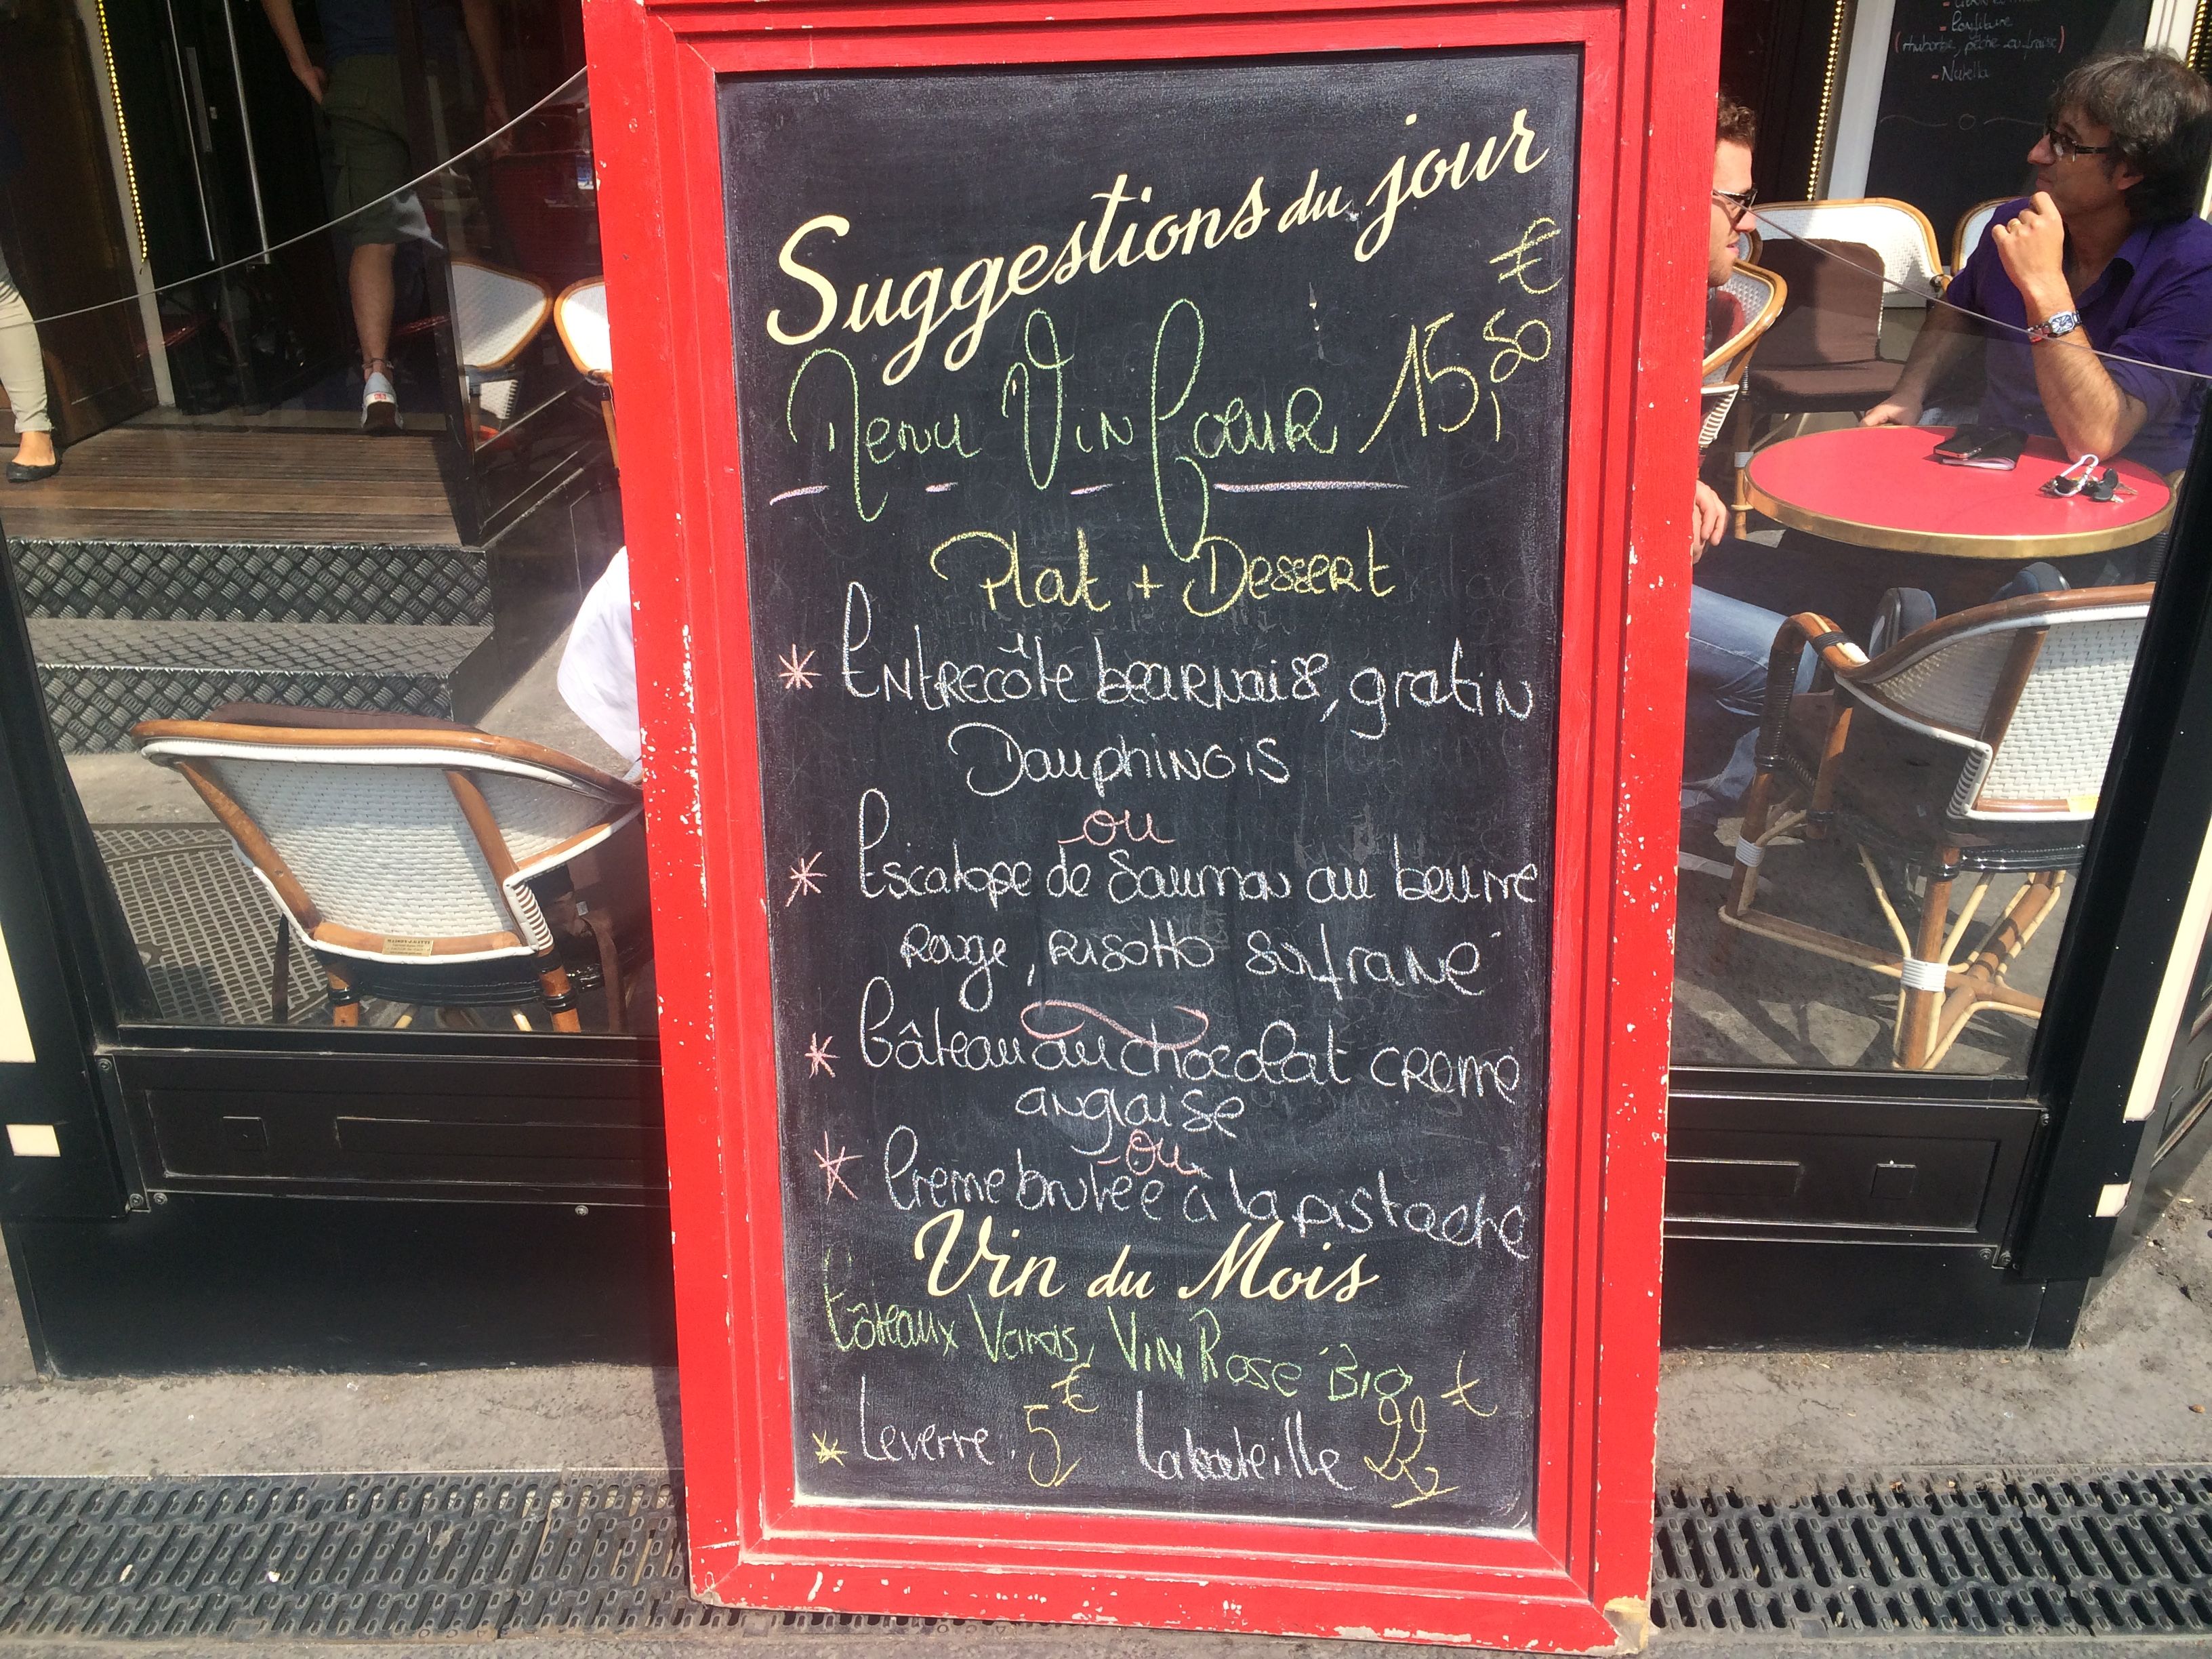 Suggestions du jour
Menu Vin Coeur 15,50 €
Plat + Dessert
* Entrecôte bearnaise, gratin
Dauphinois
ou
* Escalope de Saumon au beurre
Rouge, Risotto safrané
* Gâteau au chocolat creme
anglaise
ou
* Creme brulée à la pistache
Vin du Mois
Côteaux Varois, Vin Rosé Bio
* Le verre 5€ La bouteille 22€
- Confiture
(rhubarbe, pêche ou fraise)
- Nutella